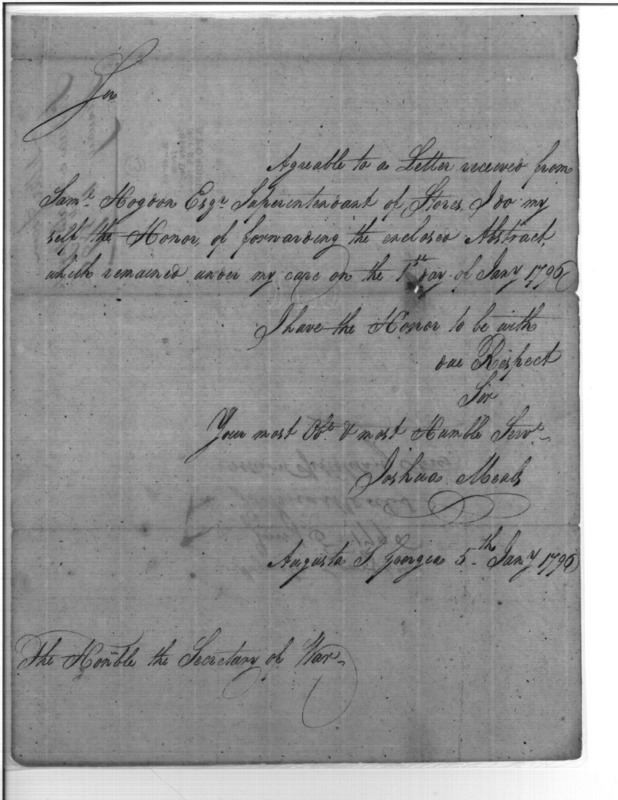 Sir
Agreable to a Letter received from
Saml. Hogdon Esqr. Superintendant of Stores, I do my
self the Honor, of forwarding the enclosed Abstract
which remained under my care on the 1st day of Jany 1796
I have the Honor to be with
due Respect
Sir
Your most Obt. & most Humble Servt.
Joshua Meals
Augusta S. Georgia 5th Jany 1796
The Honble the Secretary of War